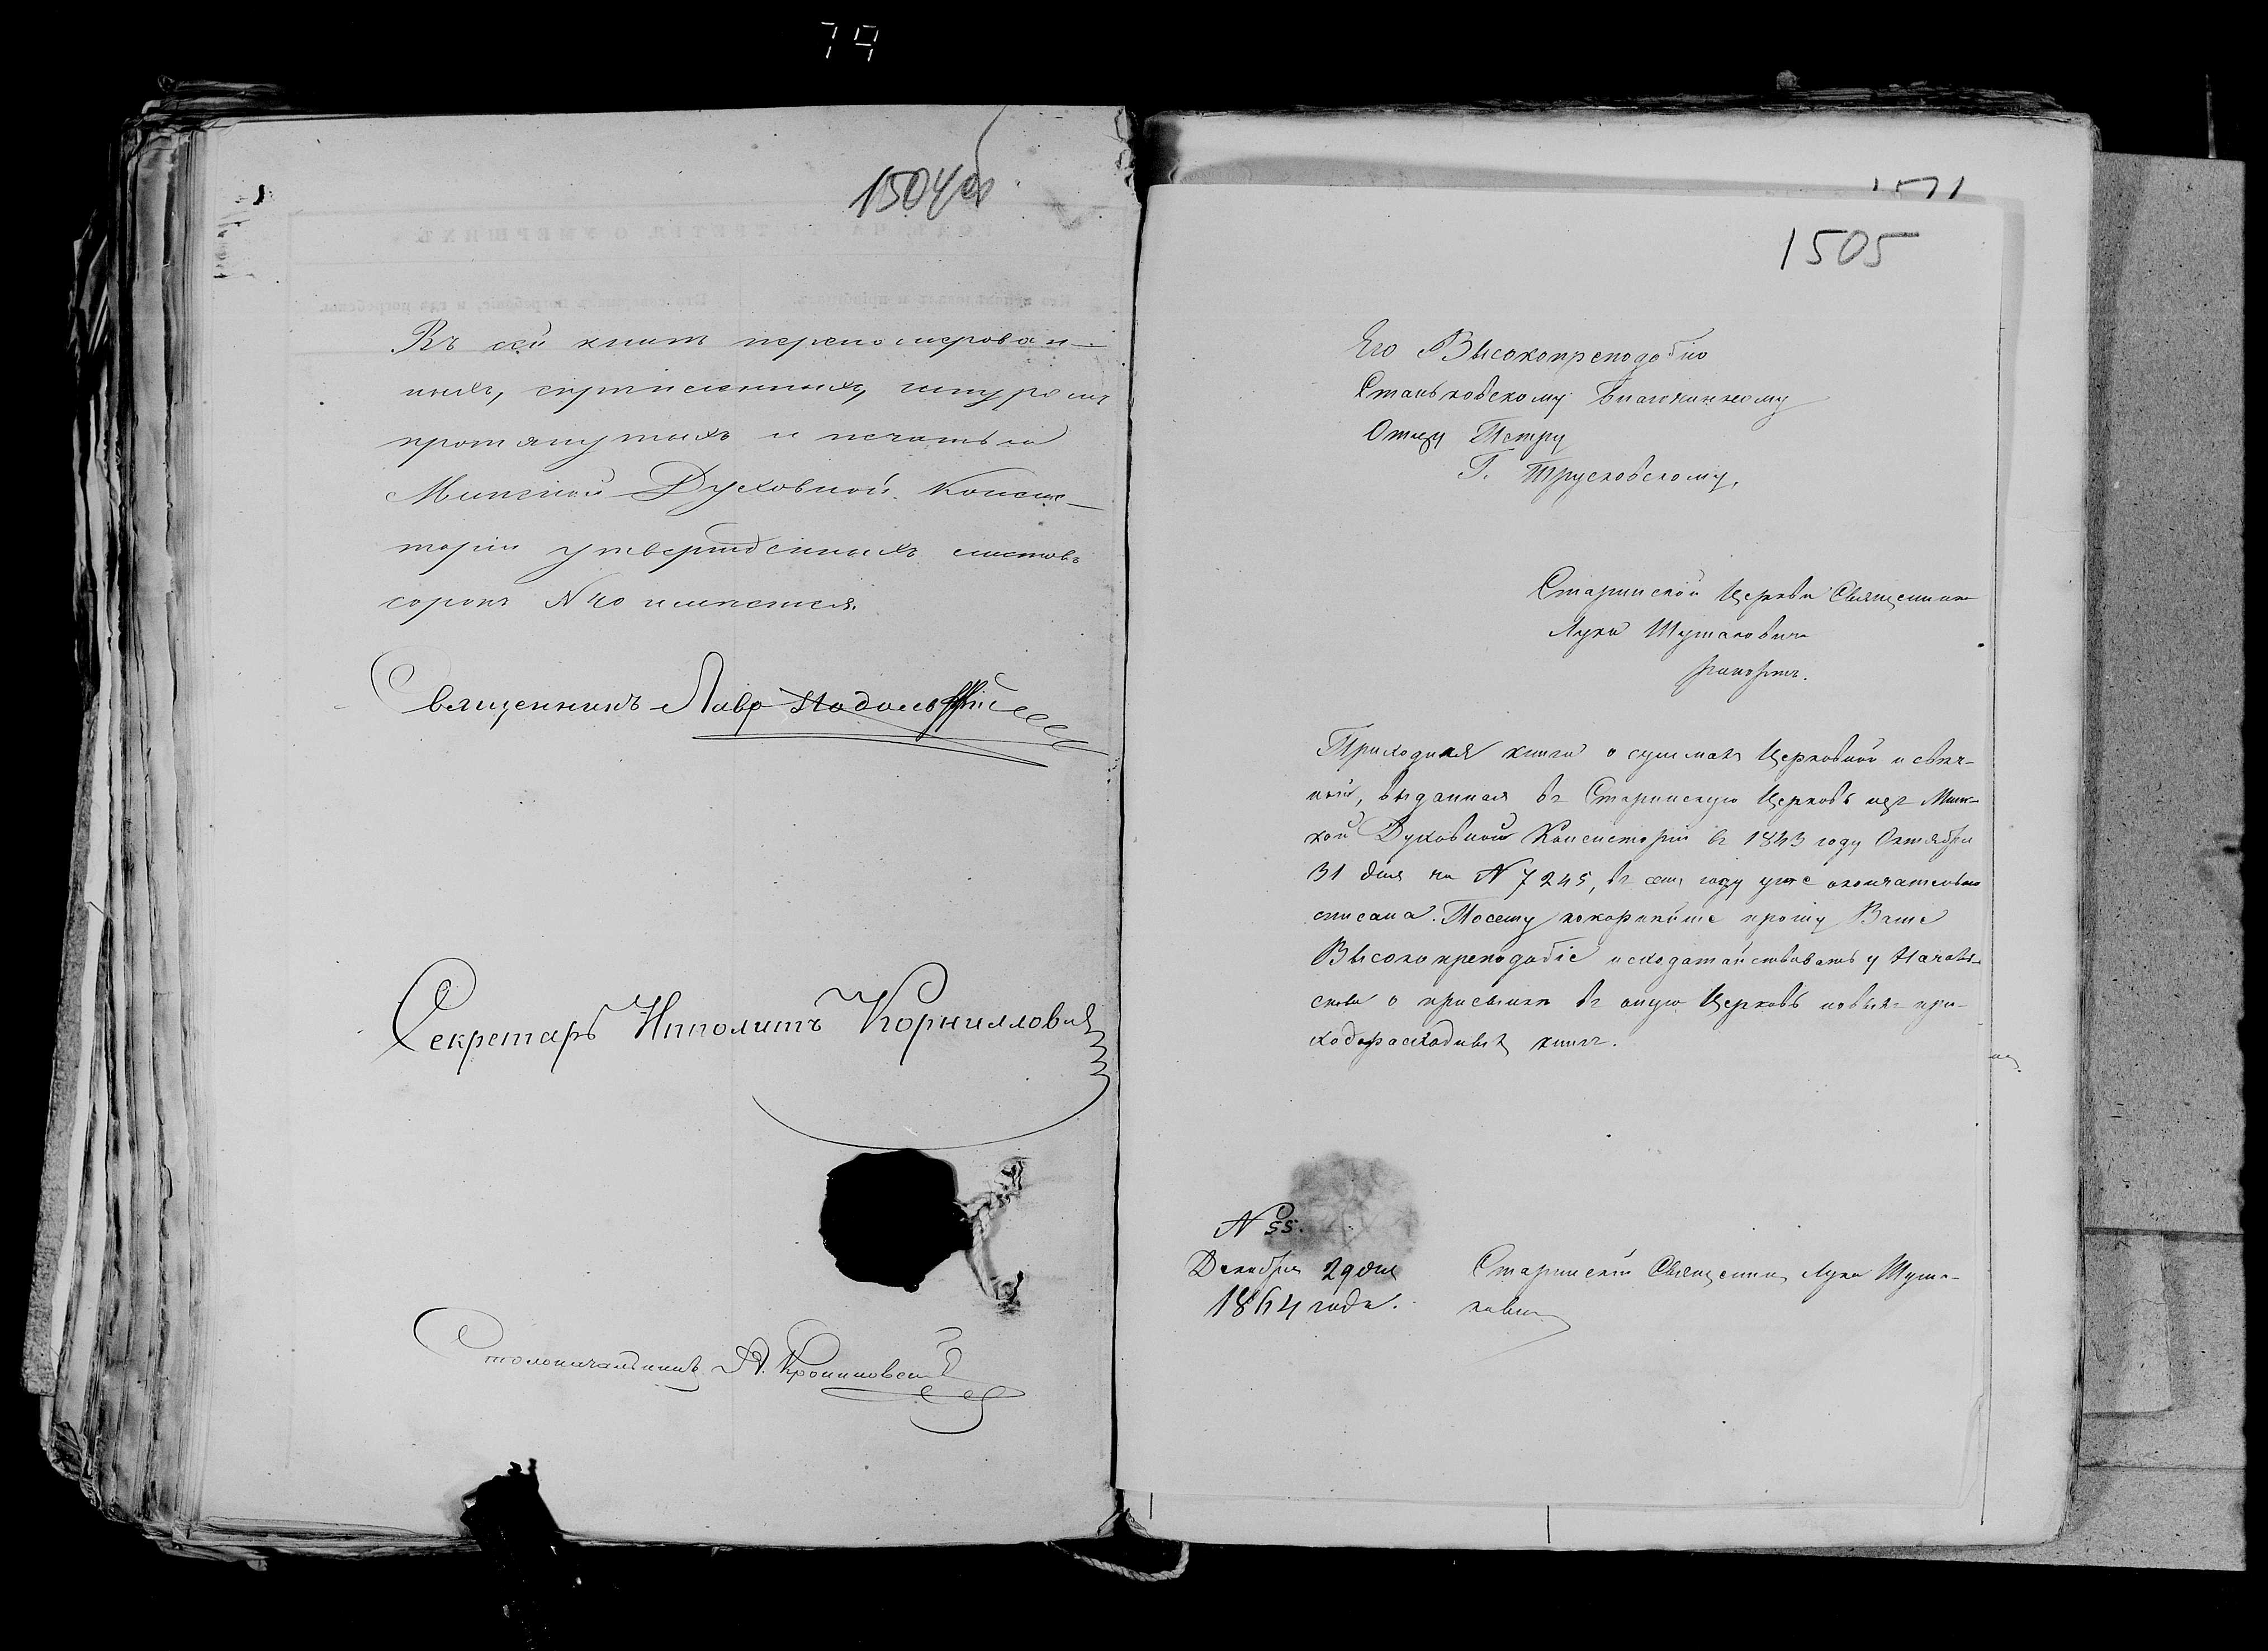 79
1504об
Въ сей книгѣ перенумерован-
ныхъ, скрѣпленныхъ, шнуромъ
протянутыхъ и печатью
Минской Духовной Консис-
торіи утвержденныхъ листовъ
сорокъ N 40 имѣется.
Священникъ Лавр
Секретарь Ипполитъ Корнилович
Столоначальникъ А.
1505
Его Высокопреподобію
Станьковскому Благочинному
Отцу Петру
Г. Трусковскому,
Старинской Церкви Священника
Луки Шутаковича
рапортъ.
Приходная книга о суммахъ Церковной и свѣч-
ной, выданная въ Старинскую Церковь изъ Минс-
кой Духовной Консисторіи въ 1843 году Октября
31 дня за N 7245, въ семъ году уже окончательно
списана. Посему покорнѣйше прошу Ваше
Высокопреподобіе исходатайствовать у Началь-
ства о присылкѣ въ оную Церковь новыхъ при-
ходорасходныхъ книгъ.
N 55.
Декабря 29 дня
1864 года.
Старинскій Священникъ Лука Шута-
кович